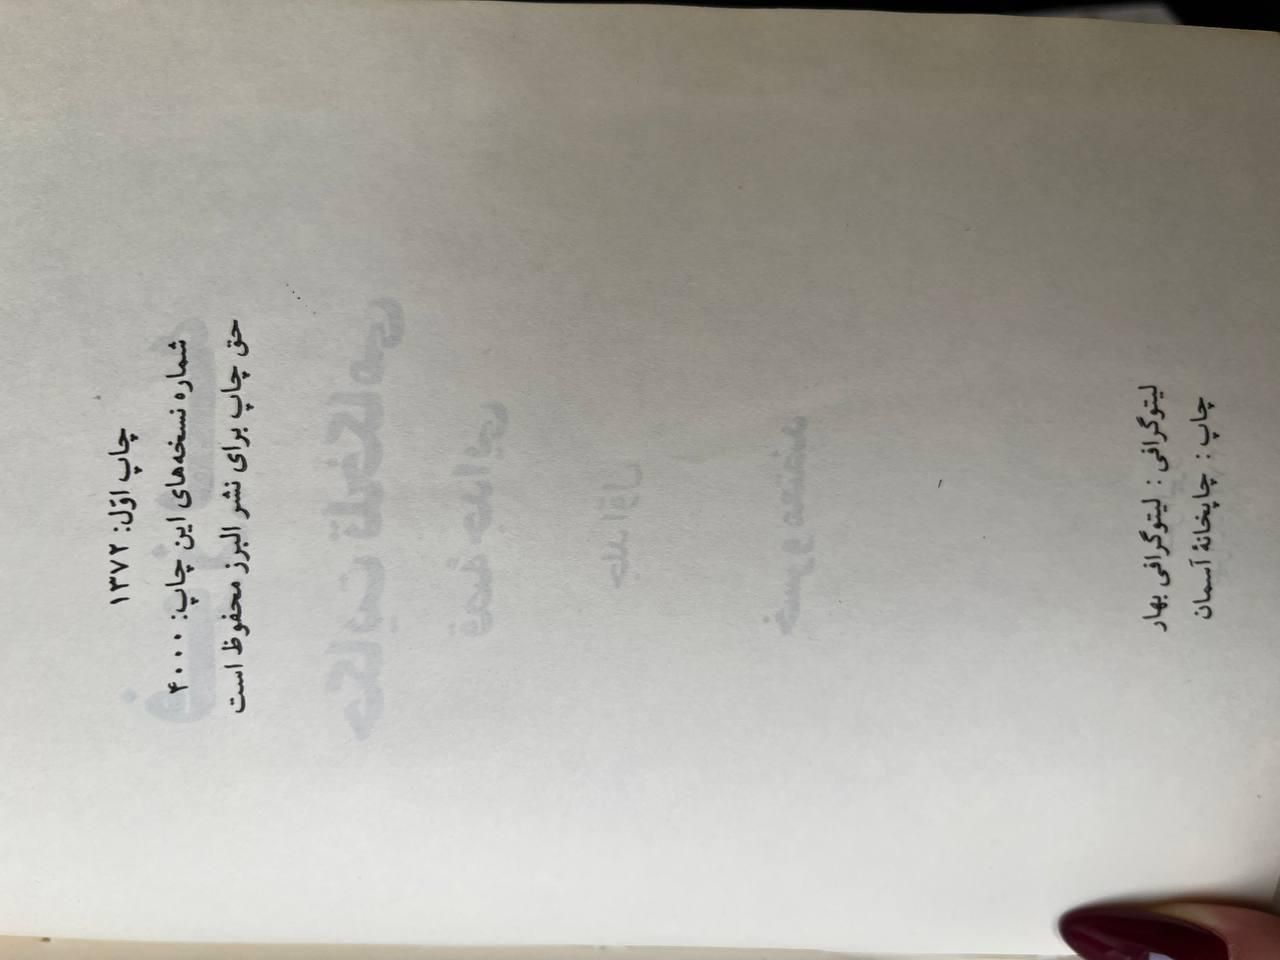 چاپ اوّل: ۱۳۷۲
شماره نسخه‌های این چاپ: ۴۰۰۰
حق چاپ برای نشر البرز محفوظ است
لیتوگرافی : لیتوگرافی بهار
چاپ : چاپخانهٔ آسمان